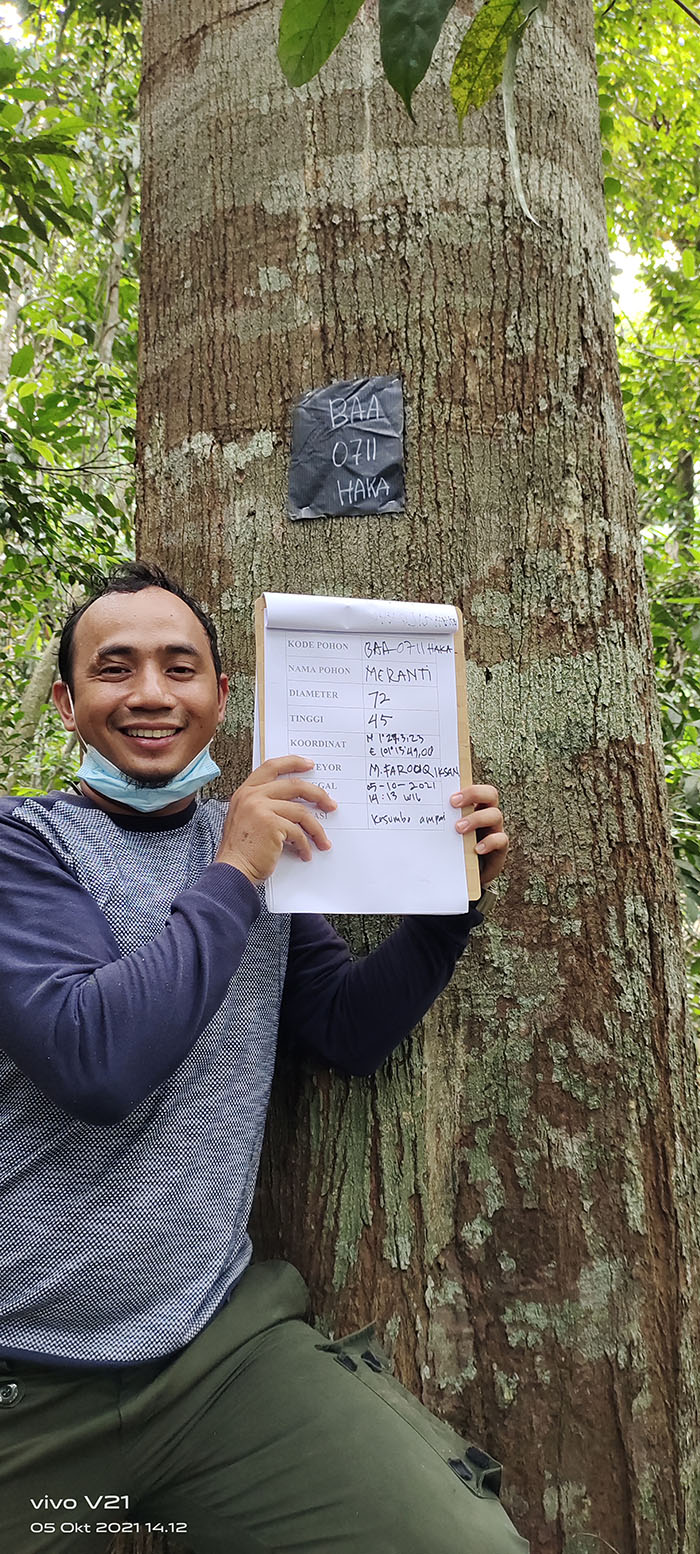 BAA
0711
HAKA
KODE POHON BAA 0711 HAKA
NAMA POHON MERANTI
DIAMETER 72
TINGGI 45
KOORDINAT
E 101°13'49,00
YEYOR M. FAROUQ IKSAN
GAL 05-10-2021
14:13 WIB
ASI Kesumbo ampai
vivo V21
05 Okt 2021 14.12